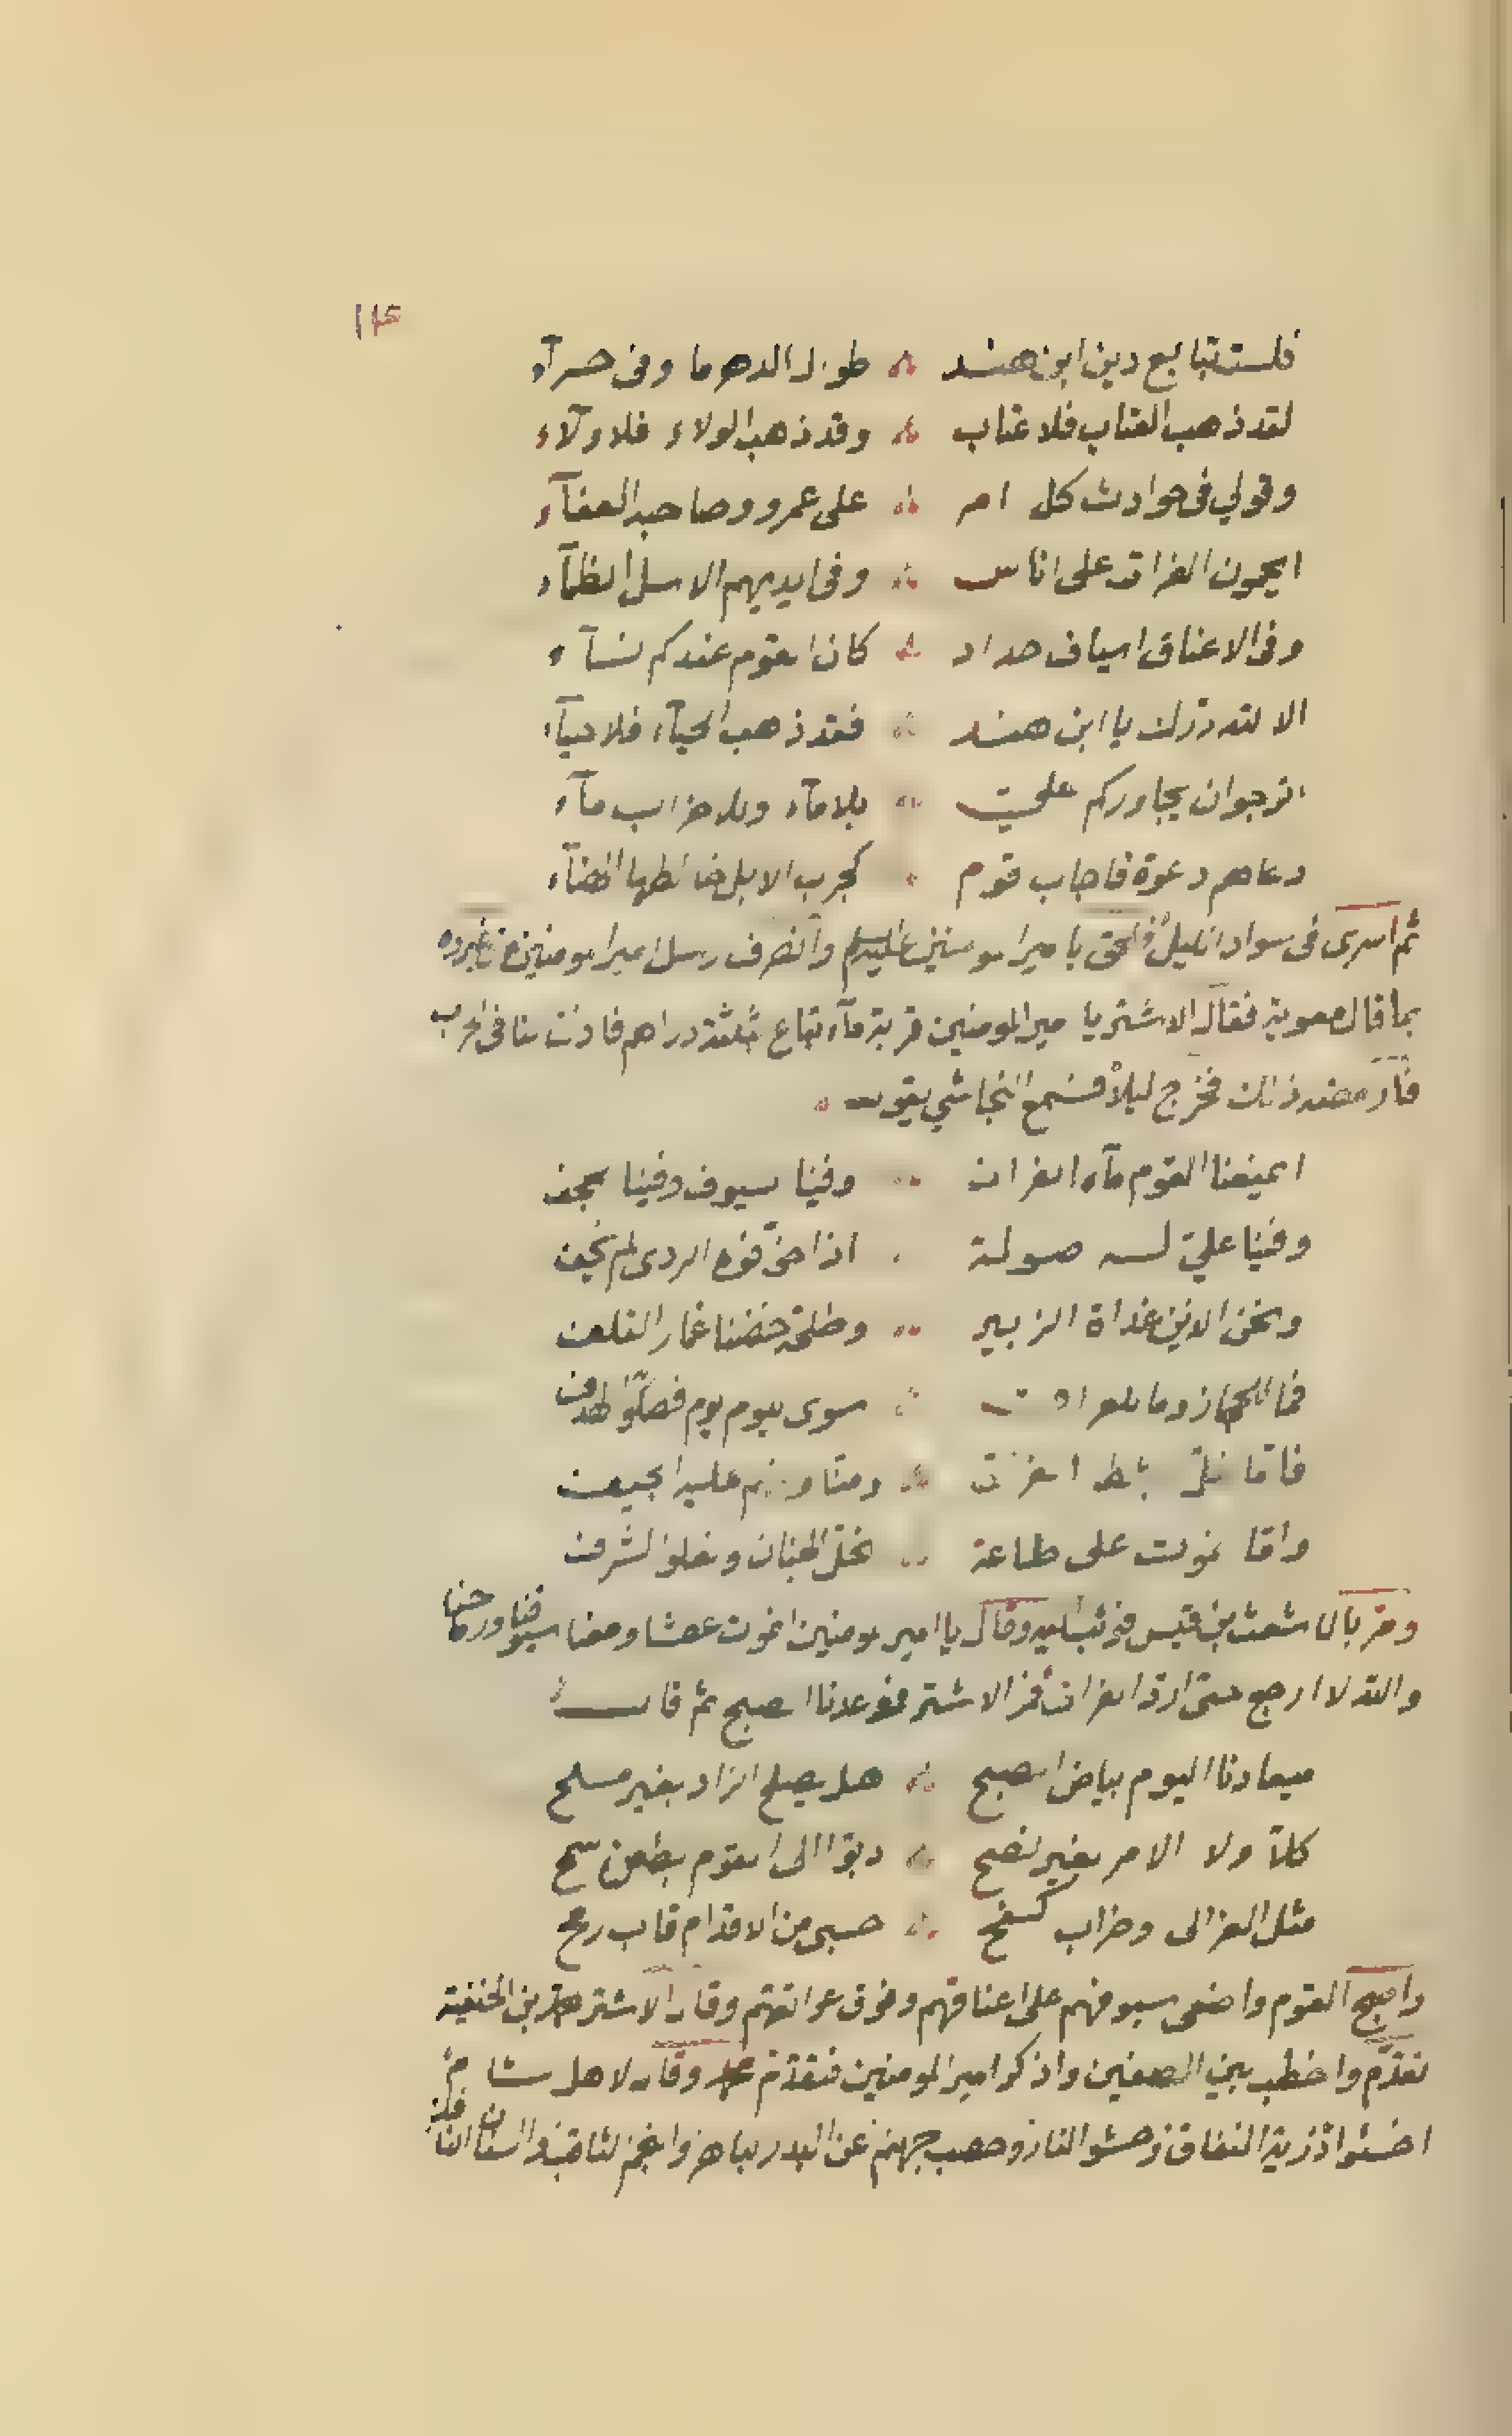 ١١٤
فلست بتابع دين ابن هند ؞ طوال الدهر ما وفى حرآء
لقد ذهب العتاب فلا عتاب ؞ وقد ذهب الولاء فلا ولآء
وقولي في حوادث كل امر ؞ على عمرو وصاحبه العفآء
ايحمون الفرات على اناس ؞ وفي ايديهم الاسل الظمآء
وفي الاعناق اسياف حداد ؞ كان القوم عندكم نسآء
الا لله درّك يا ابن هند ؞ فقد ذهب الحيآء فلا حيآء
اترجوان يجاوركم عليّ ؞ بلا مآء وللاحزاب مآء
دعاهم دعوة فاجاب قوم ؞ كجرب الابل خالطها الهنآء
ثم اسرى في سواد الليل فلحق بامير المومنين عليه وانصرف رسل امير المومنين فاخبروه
بما قال معوية فقال الاشتر يا امير المومنين قربة مآء تباع بثلثة دراهم فاذن لنا في الحرب
ذلك فخرج ليلاً فسمع النجاشي يقول ؞
ايمنعنا القوم مآء الفرات ؞ وفينا سيوف وفينا الحجف
وفينا عليّ له صولة ؞ اذا خوّفوه الردى لم يخف
ونحن الذين غداة الزبير ؞ وطلحة خضنا غمار التلف
فما للحجاز وما للعراق ؞ سوى اليوم يوم فصكّوا الهدف
فامّا نحلّ بشط الفرات ؞ ومنّا ومنهم عليه الجيف
وامّا نموت على طاعة ؞ نحلّ الجنان ونعلو الشرف
ومرّ بالاشعث بن قيس فوثب اليه وقال يا امير المومنين انموت عطشا ومعنا سيوفنا ورماحنا
والله لا ارجع حتى ارد الفرات فمر الاشتر فوعدنا الصبح ثم قال
ميعادنا اليوم بياض الصبح ؞ هل يصلح الزاد بغير ملح
كلاّ ولا الامر بغير نصح ؞ دبوّا الى القوم بطعن سمح
مثل العزالى وضراب كفح ؞ حسبي من الاقدام قاب رمح
واصبح القوم واضعي سيوفهم على اعناقهم وفوق عواتقهم وقال الاشتر لمحمد بن الحنفية
تقدّم واخطب بين الصفين واذكر امير المومنين فتقدّم محمد وقال لاهل الشام
اخسئوا ذرّية النفاق وحشو النار وحصب جهنم عن البدر الباهر والنجم الثاقب والسنان النافذ